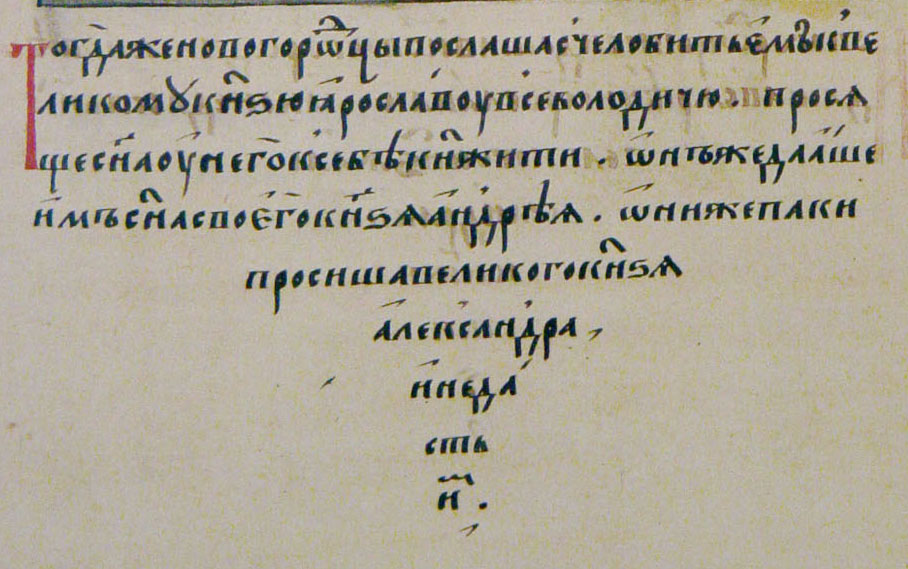 Тогдаженовогорѡⷣцыпослашасчелобитьемъкве
ликомꙋкн҃ѕюꙗрославоувсеволодичю. прося
щесн҃аоунегоксебѣкн҃жити. ѡнъжедааше
имъсн҃асвоегокн҃ѕяандрѣя. ѡнижепаки
просишавеликогокн҃ѕя
александра,
инеда
сть
и҆мⷨ.